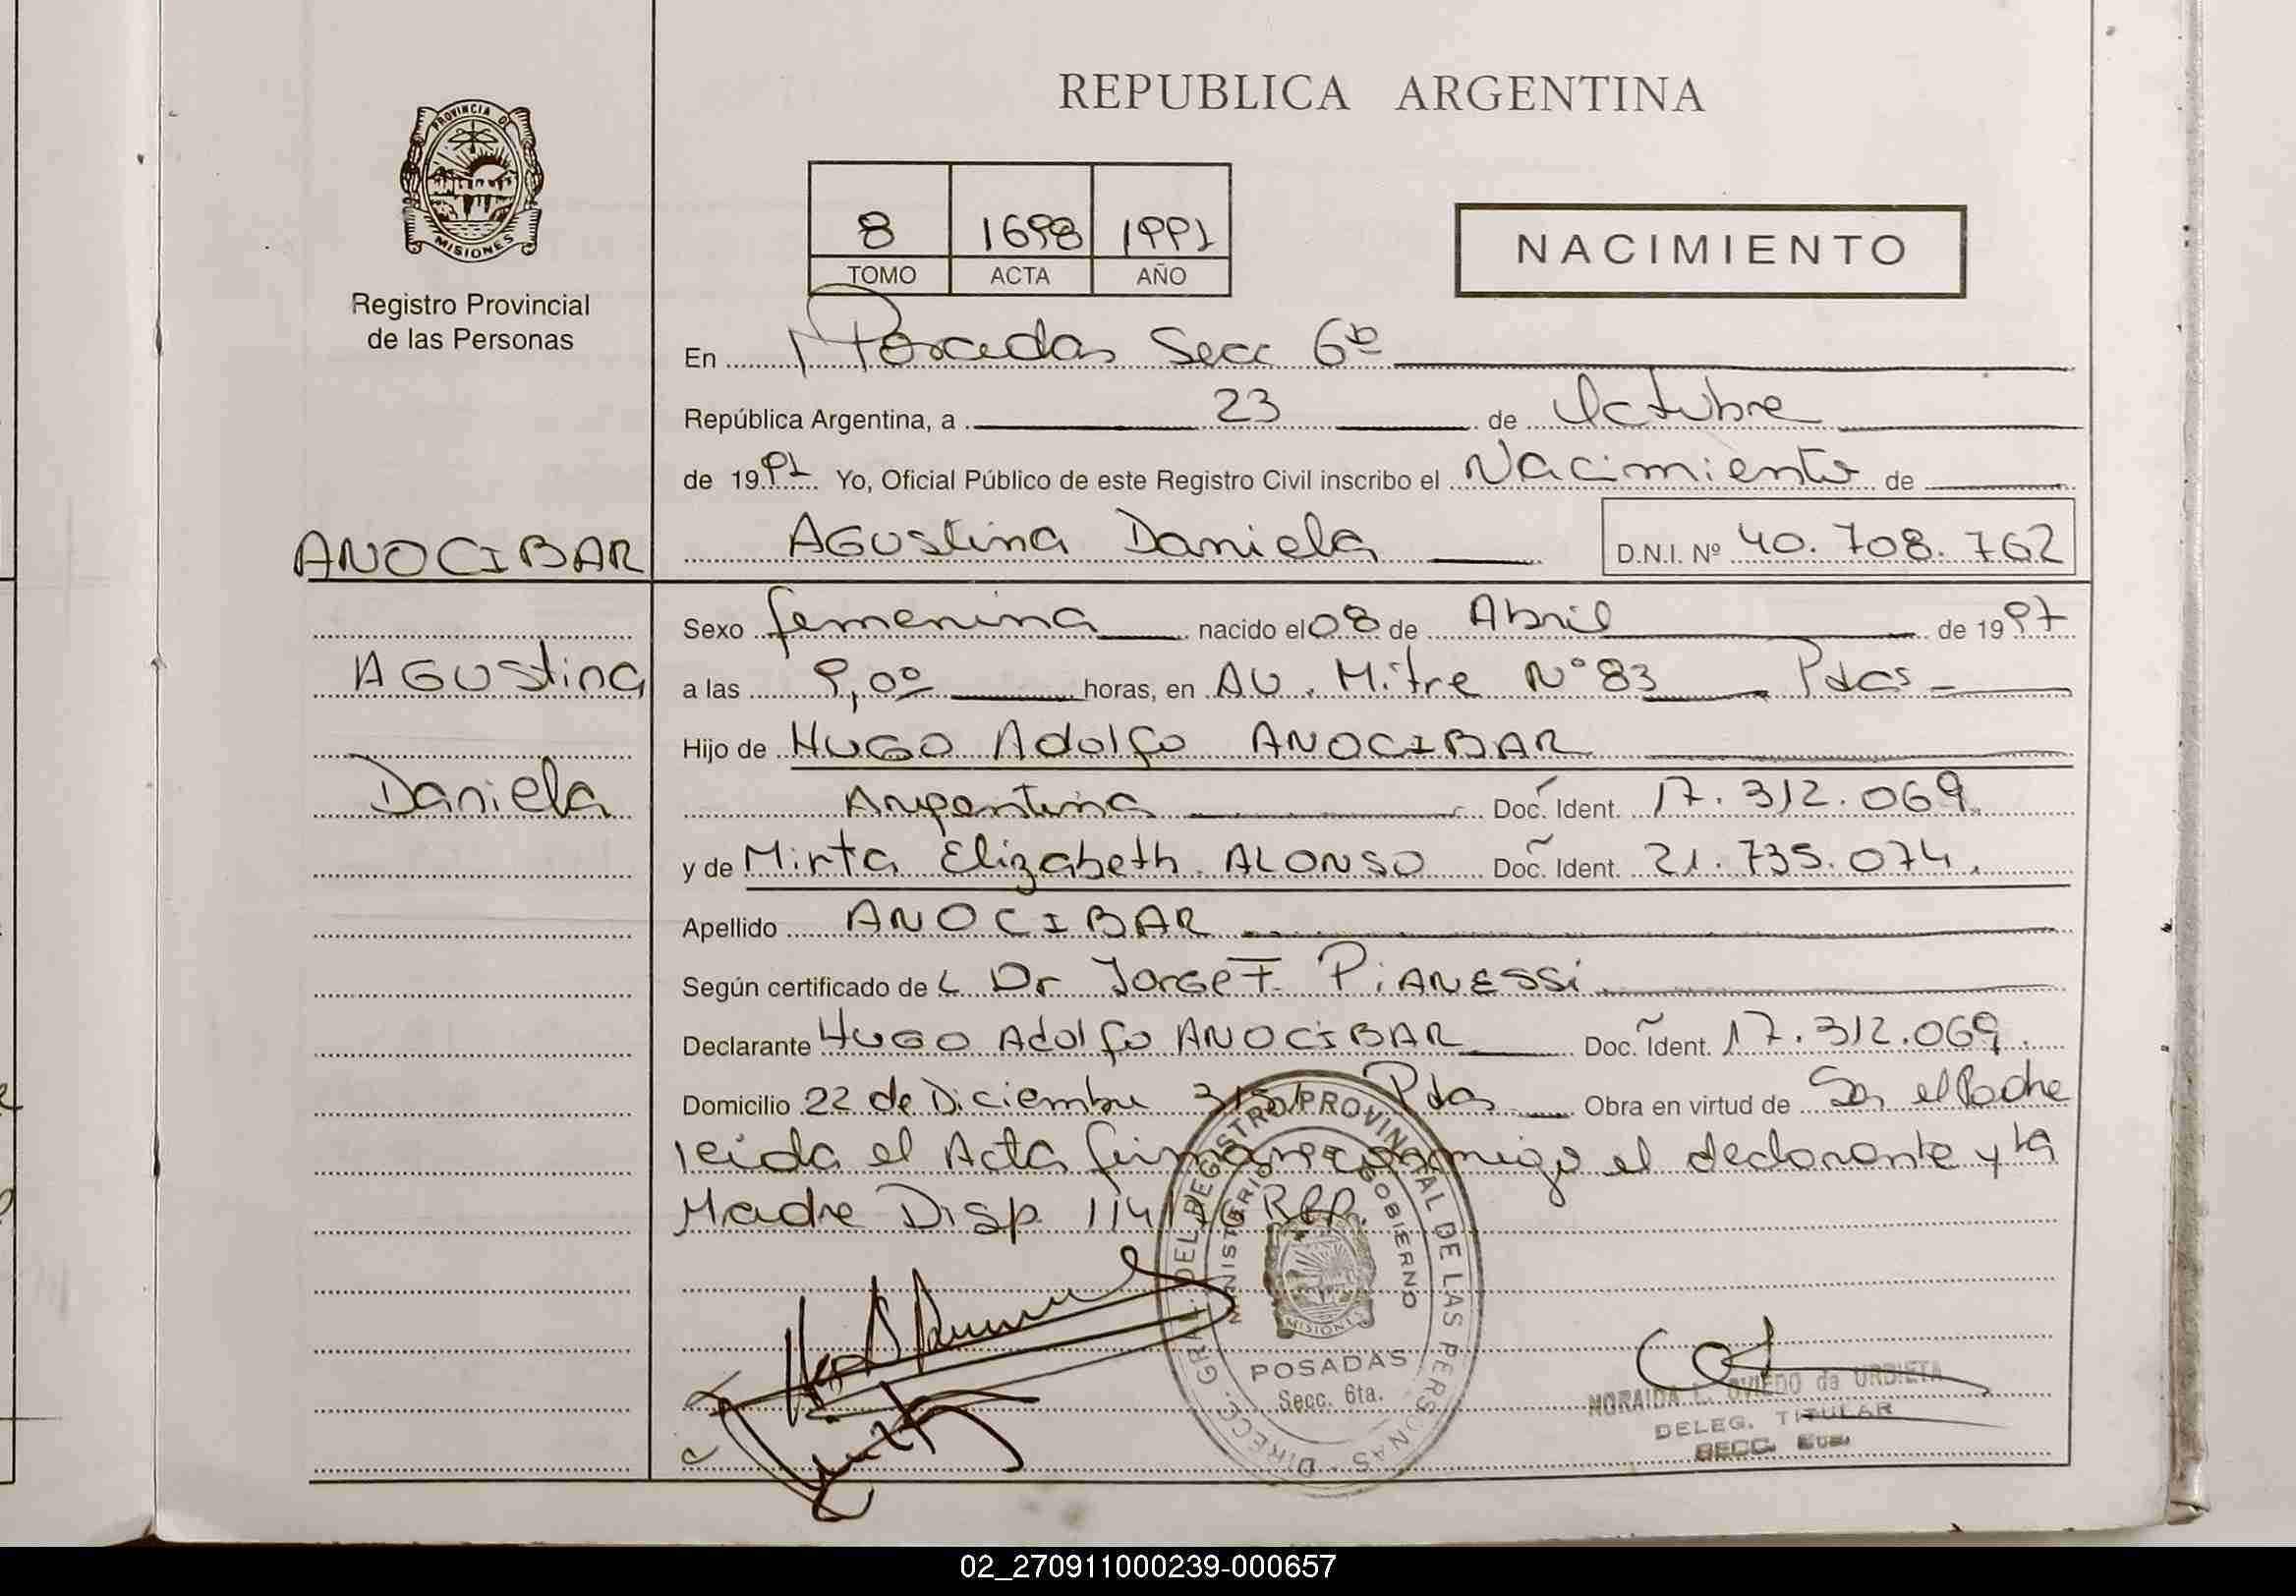 REPUBLICA ARGENTINA
PROVINCIA DE
MISIONES
Registro Provincial
de las Personas
8 1698 1997
TOMO ACTA AÑO
NACIMIENTO
En Posadas Secc 6ª
República Argentina, a 23 de Octubre
de 1997 Yo, Oficial Público de este Registro Civil inscribo el Nacimiento de
ANOCIBAR
AGUStina Daniela D.N.I. Nº 40.708.762
Sexo femenina nacido el 08 de Abril de 1997
AGUStina
a las 9,00 horas, en AU. Mitre N°83 Pdas
Hijo de HUGO Adolfo ANOCIBAR
Daniela
Argentina Doc. Ident. 17.312.069
y de Mirta Elizabeth ALONSO Doc. Ident. 21.735.074
Apellido ANOCIBAR
Según certificado de L Dr JorGe F. PiANESSi
Declarante HUGO Adolfo ANOCIBAR Doc. Ident. 17.312.069
Domicilio 22 de Diciembre Pdas Obra en virtud de Ser el Padre
leida el Acta firman conmigo el declarante y la
Madre Disp 114/
DIRECC. GRAL. DEL REGISTRO PROVINCIAL DE LAS PERSONAS
MINISTERIO DE GOBIERNO
MISIONES
POSADAS
Secc. 6ta.
NORAIDA L. OVIEDO de URBIETA
DELEG. TITULAR
SECC. 6ta.
02_270911000239-000657